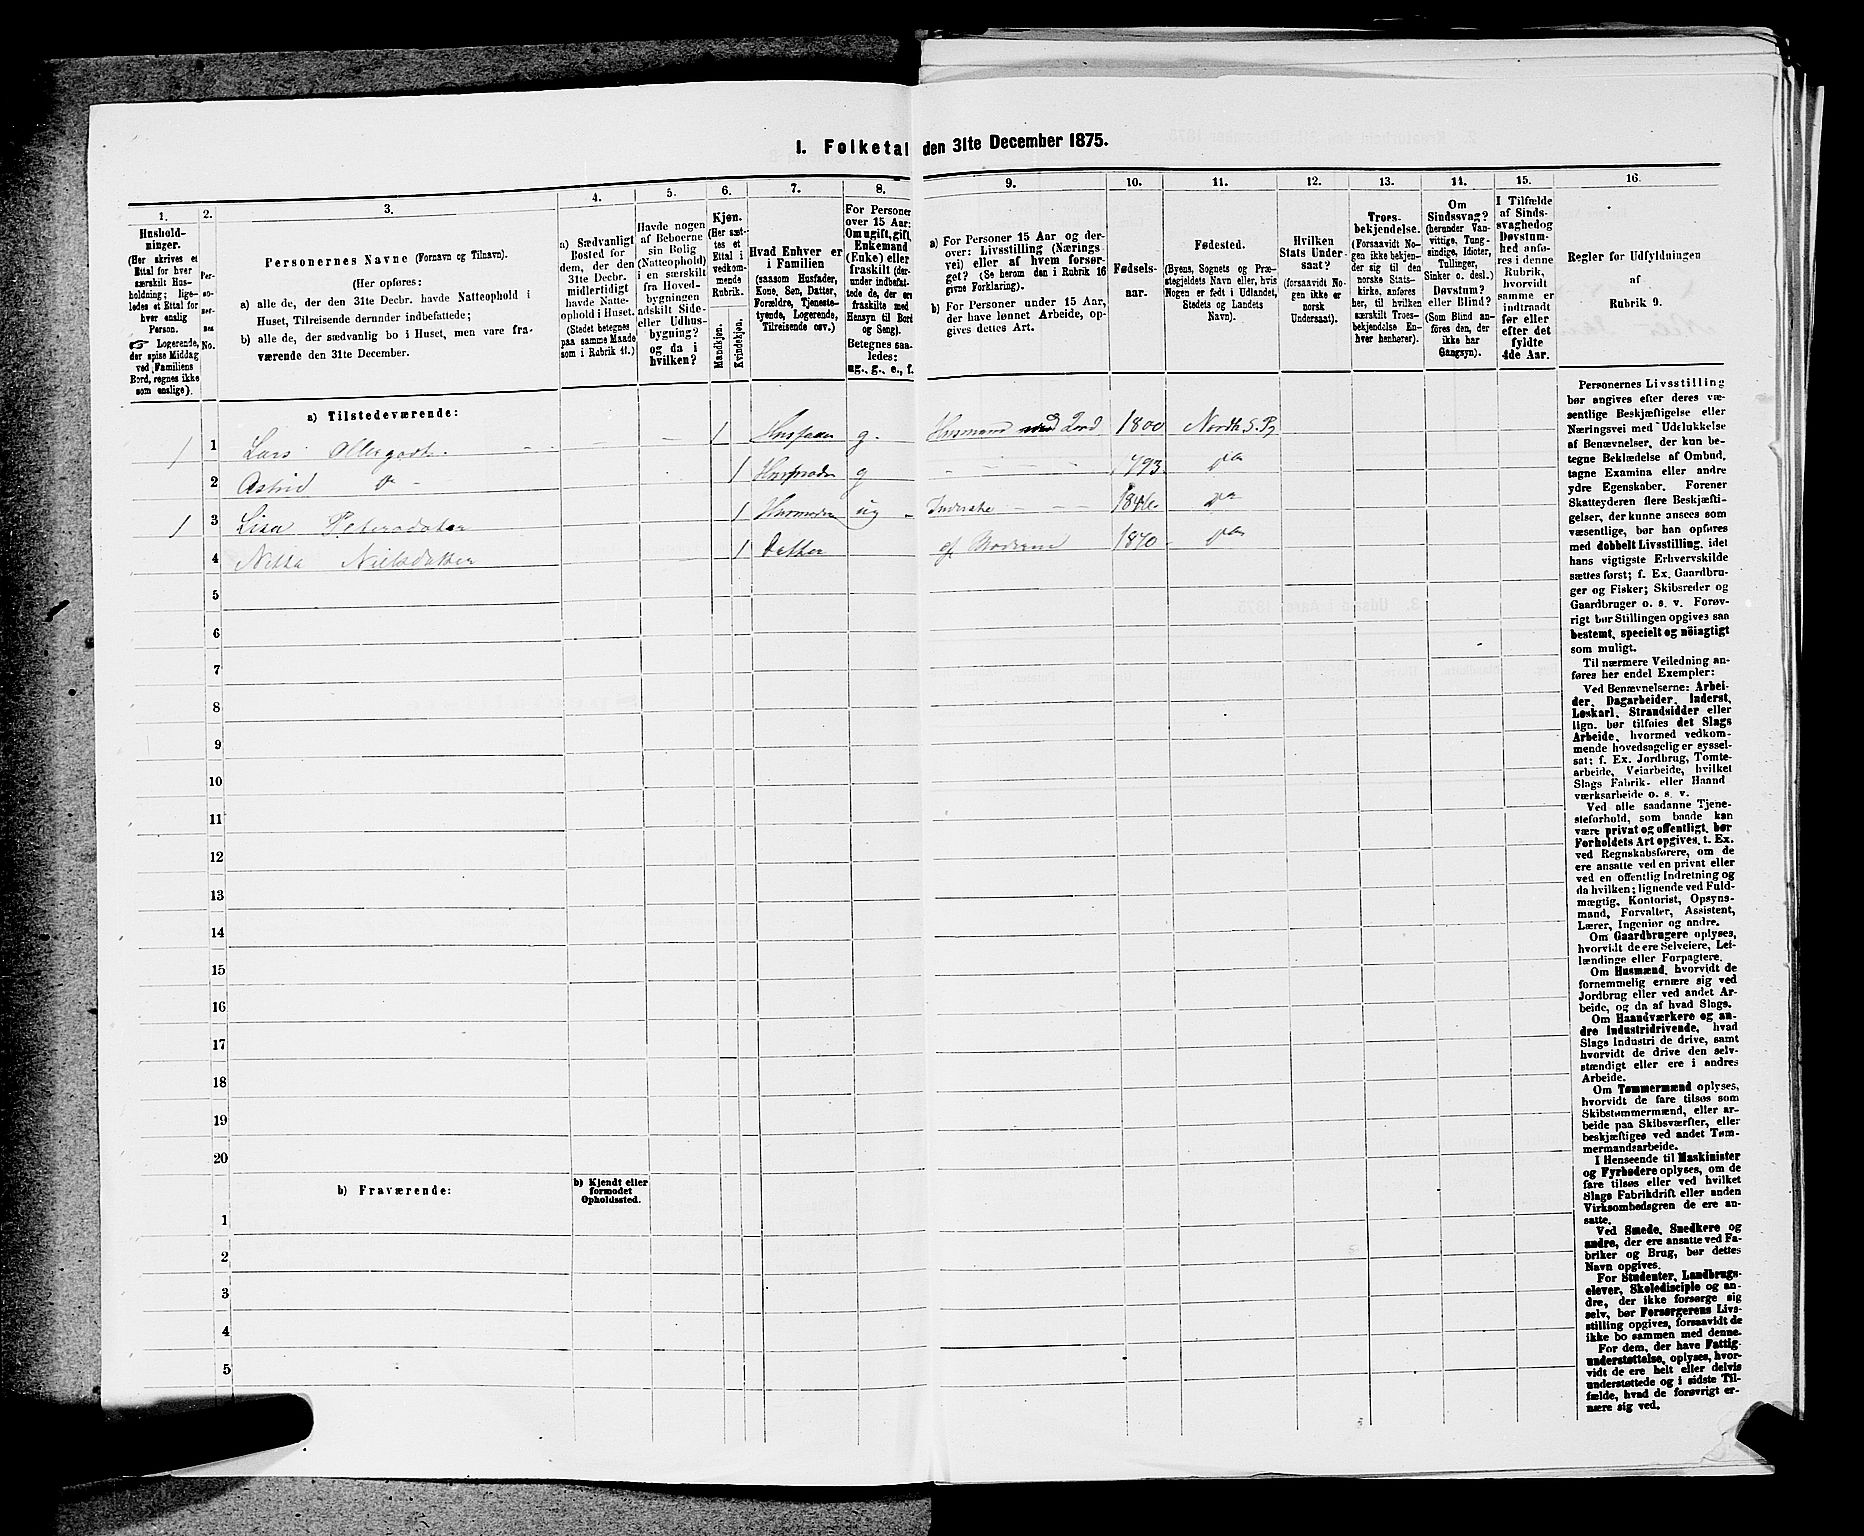 I. Folketal den 31te December 1875.
1.
Hushold-
ninger.
(Her skrives et
Ettal for hver
særskilt Hus-
holdning; lige-
ledes et Ettal for
hver enslig
Person.
Logerende,
der spise Middag
ved Familiens
Bord, regnes ikke
som enslige).
2.
Per-
so-
ner-
nes
No.
3.
Personernes Navne (Fornavn og Tilnavn).
(Her opføres:
a) alle de, der den 31te Decbr. havde Natteophold i
Huset, Tilreisende derunder indbefattede;
b) alle de, der sædvanlig bo i Huset, men vare fra-
værende den 31te December.
4.
a) Sædvanligt
Bosted for
dem, der den
31te Decbr.
midlertidigt
havde Natte-
ophold i Huset.
(Stedet betegnes
paa samme Maade
som i Rubrik 11.)
5.
Havde nogen
af Beboerne
sin Bolig
(Natteophold)
i en særskilt
fra Hoved-
bygningen
adskilt Side-
eller Udhus-
bygning?
og da i
hvilken?
6.
Kjøn.
(Her sæt-
tes et
Ettal i
vedkom-
mende
Rubrik.
Mandkjøn.
Kvindekjøn.
7.
Hvad Enhver er
i Familien
(saasom Husfader,
Kone, Søn, Datter,
Forældre, Tjeneste-
tyende, Logerende,
Tilreisende osv.)
8.
For Personer
over 15 Aar:
Om ugift, gift,
Enkemand
(Enke) eller
fraskilt (der-
under indbefat-
tede de, der er
fraskilte med
Hensyn til Bord
og Seng).
Betegnes saa-
ledes:
ug., g., e., f.
9.
a) For Personer 15 Aar og der-
over: Livsstilling (Nærings
vei) eller af hvem forsør-
get? (Se herom den i Rubrik 16
givne Forklaring).
b) For Personer under 15 Aar,
der have lønnet Arbeide, op-
gives dettes Art.
10.
Fødsels-
aar.
11.
Fødested.
(Byens, Sognets og Præ-
stegjeldets Navn eller, hvis
Nogen er født i Udlandet,
Stedets og Landets
Navn).
12.
Hvilken
Stats Under-
saat?
(forsaavidt No-
gen ikke er
norsk
Undersaat).
13.
Troes-
bekjendelse.
(Forsaavidt No-
gen ikke bekjen-
der sig til den
norske Stats-
kirke, anføres
her, til hvilken
særskilt Troes-
bekjendelse En-
hver henhører).
14.
Om
Sindssvag?
(herunder Van-
vittige, Tung-
sindige, Idioter,
Tullinger,
Sinker o. desl.)
Døvstum?
eller Blind?
(Som Blind an-
føres den, der
ikke har
Gangsyn).
15.
I Tilfælde
af Sinds-
svaghed og
Døvstum-
hed anfø-
res i denne
Rubrik,
hvorvidt
samme er
indtraadt
før eller
efter det
fyldte
4de Aar.
16.
Regler for Udfyldningen
af
Rubrik 9.
a) Tilstedeværende:
1 1 Lars - - - 1 Husfader g. Husmand Jord 1800
2 Astrid 1 g - - - - 1793.
1 3 Lisa Petersdatter 1 ug Inderste - - -
4 Nilsdatter 1 Datter af Moderen 1870
5
6
7
8
9
10
11
12
13
14
15
16
17
18
19
20
b) Fraværende:
b) Kjendt eller
formodet
Opholdssted.
1
2
3
4
5
Personernes Livsstilling
bør angives efter deres væ-
sentlige Beskjæftigelse eller
Næringsvei med Udelukkelse
af Benævnelser, der kun be-
tegne Beklædelse af Ombud,
tagne Examina eller andre
ydre Egenskaber. Forener
Skatteyderen flere Beskjæfti-
gelser, der kunne ansees som
væsentlige, bør han opføres
med dobbelt Livsstilling, idet
hans vigtigste Erhvervskilde
sættes først; f. Ex. Gaardbru-
ger og Fisker; Skibsreder og
Gaardbruger o. s. v. Forøv-
rigt bør Stillingen opgives saa
bestemt, specielt og nöiagtigt
som muligt.
Til nærmere Veiledning an-
føres her endel Exempler:
Ved Benævnelserne: Arbei-
der, Dagarbeider, Inderst,
Løskarl, Strandsidder eller
lign. bør tilføies det Slags
Arbeide, hvormed vedkom-
mende hovedsagelig er syssel-
sat; f. Ex. Jordbrug, Tomte-
arbeide, Veiarbeide, hvilket
Slags Fabrik- eller Haand
værksarbeide o. s. v.
Ved alle saadanne Tjene-
steforhold, som baade kan
være privat og offentligt, bør
Forholdets Art opgives, t. Ex.
ved Regnskabsførere, om de
ere ansatte ved en privat eller
ved en offentlig Indretning og
da hvilken; lignende ved Fuld-
mægtig, Kontorist, Opsyns-
mand, Forvalter, Assistent,
Lærer, Ingeniør og andre.
Om Gaardbrugere oplyses,
hvorvidt de ere Selveiere, Lei-
lændinge eller Forpagtere.
Om Husmænd, hvorvidt de
fornemmelig ernære sig ved
Jordbrug eller ved andet Ar-
beide, og da af hvad Slags.
Om Haandværkere og an-
dre Industridrivende, hvad
Slags Industri de drive, samt
hvorvidt de drive den selv-
stændigt eller ere i andres
Arbeide.
Om Tømmermænd oplyses,
hvorvidt de fare tilsøs som
Skibstømmermænd, eller ar-
beide paa Skibsværfter, eller
beskjæftiges ved andet Tøm-
mermandsarbeide.
I Henseende til Maskinister
og Fyrbødere oplyses, om de
fare tilsøs eller ved hvilket
Slags Fabrikdrift eller anden
Virksombedsgren de ere an-
satte.
Ved Smede, Snedkere og
andre, der ere ansatte ved Fa-
briker og Brug, bør dettes
Navn opgives.
For Studenter, Landbrugs-
elever, Skoledisciple og an-
dre, der ikke forsørge sig
selv, bør Forsørgerens Livs-
stilling opgives, forsaavidt de
ikke bo sammen med denne.
For dem, der have Fattig-
understøttelse, oplyses, hvor-
vidt de ere helt eller delvis
understøttede og i sidste Til-
fælde, hvad de forøvrigt er-
nære sig ved.